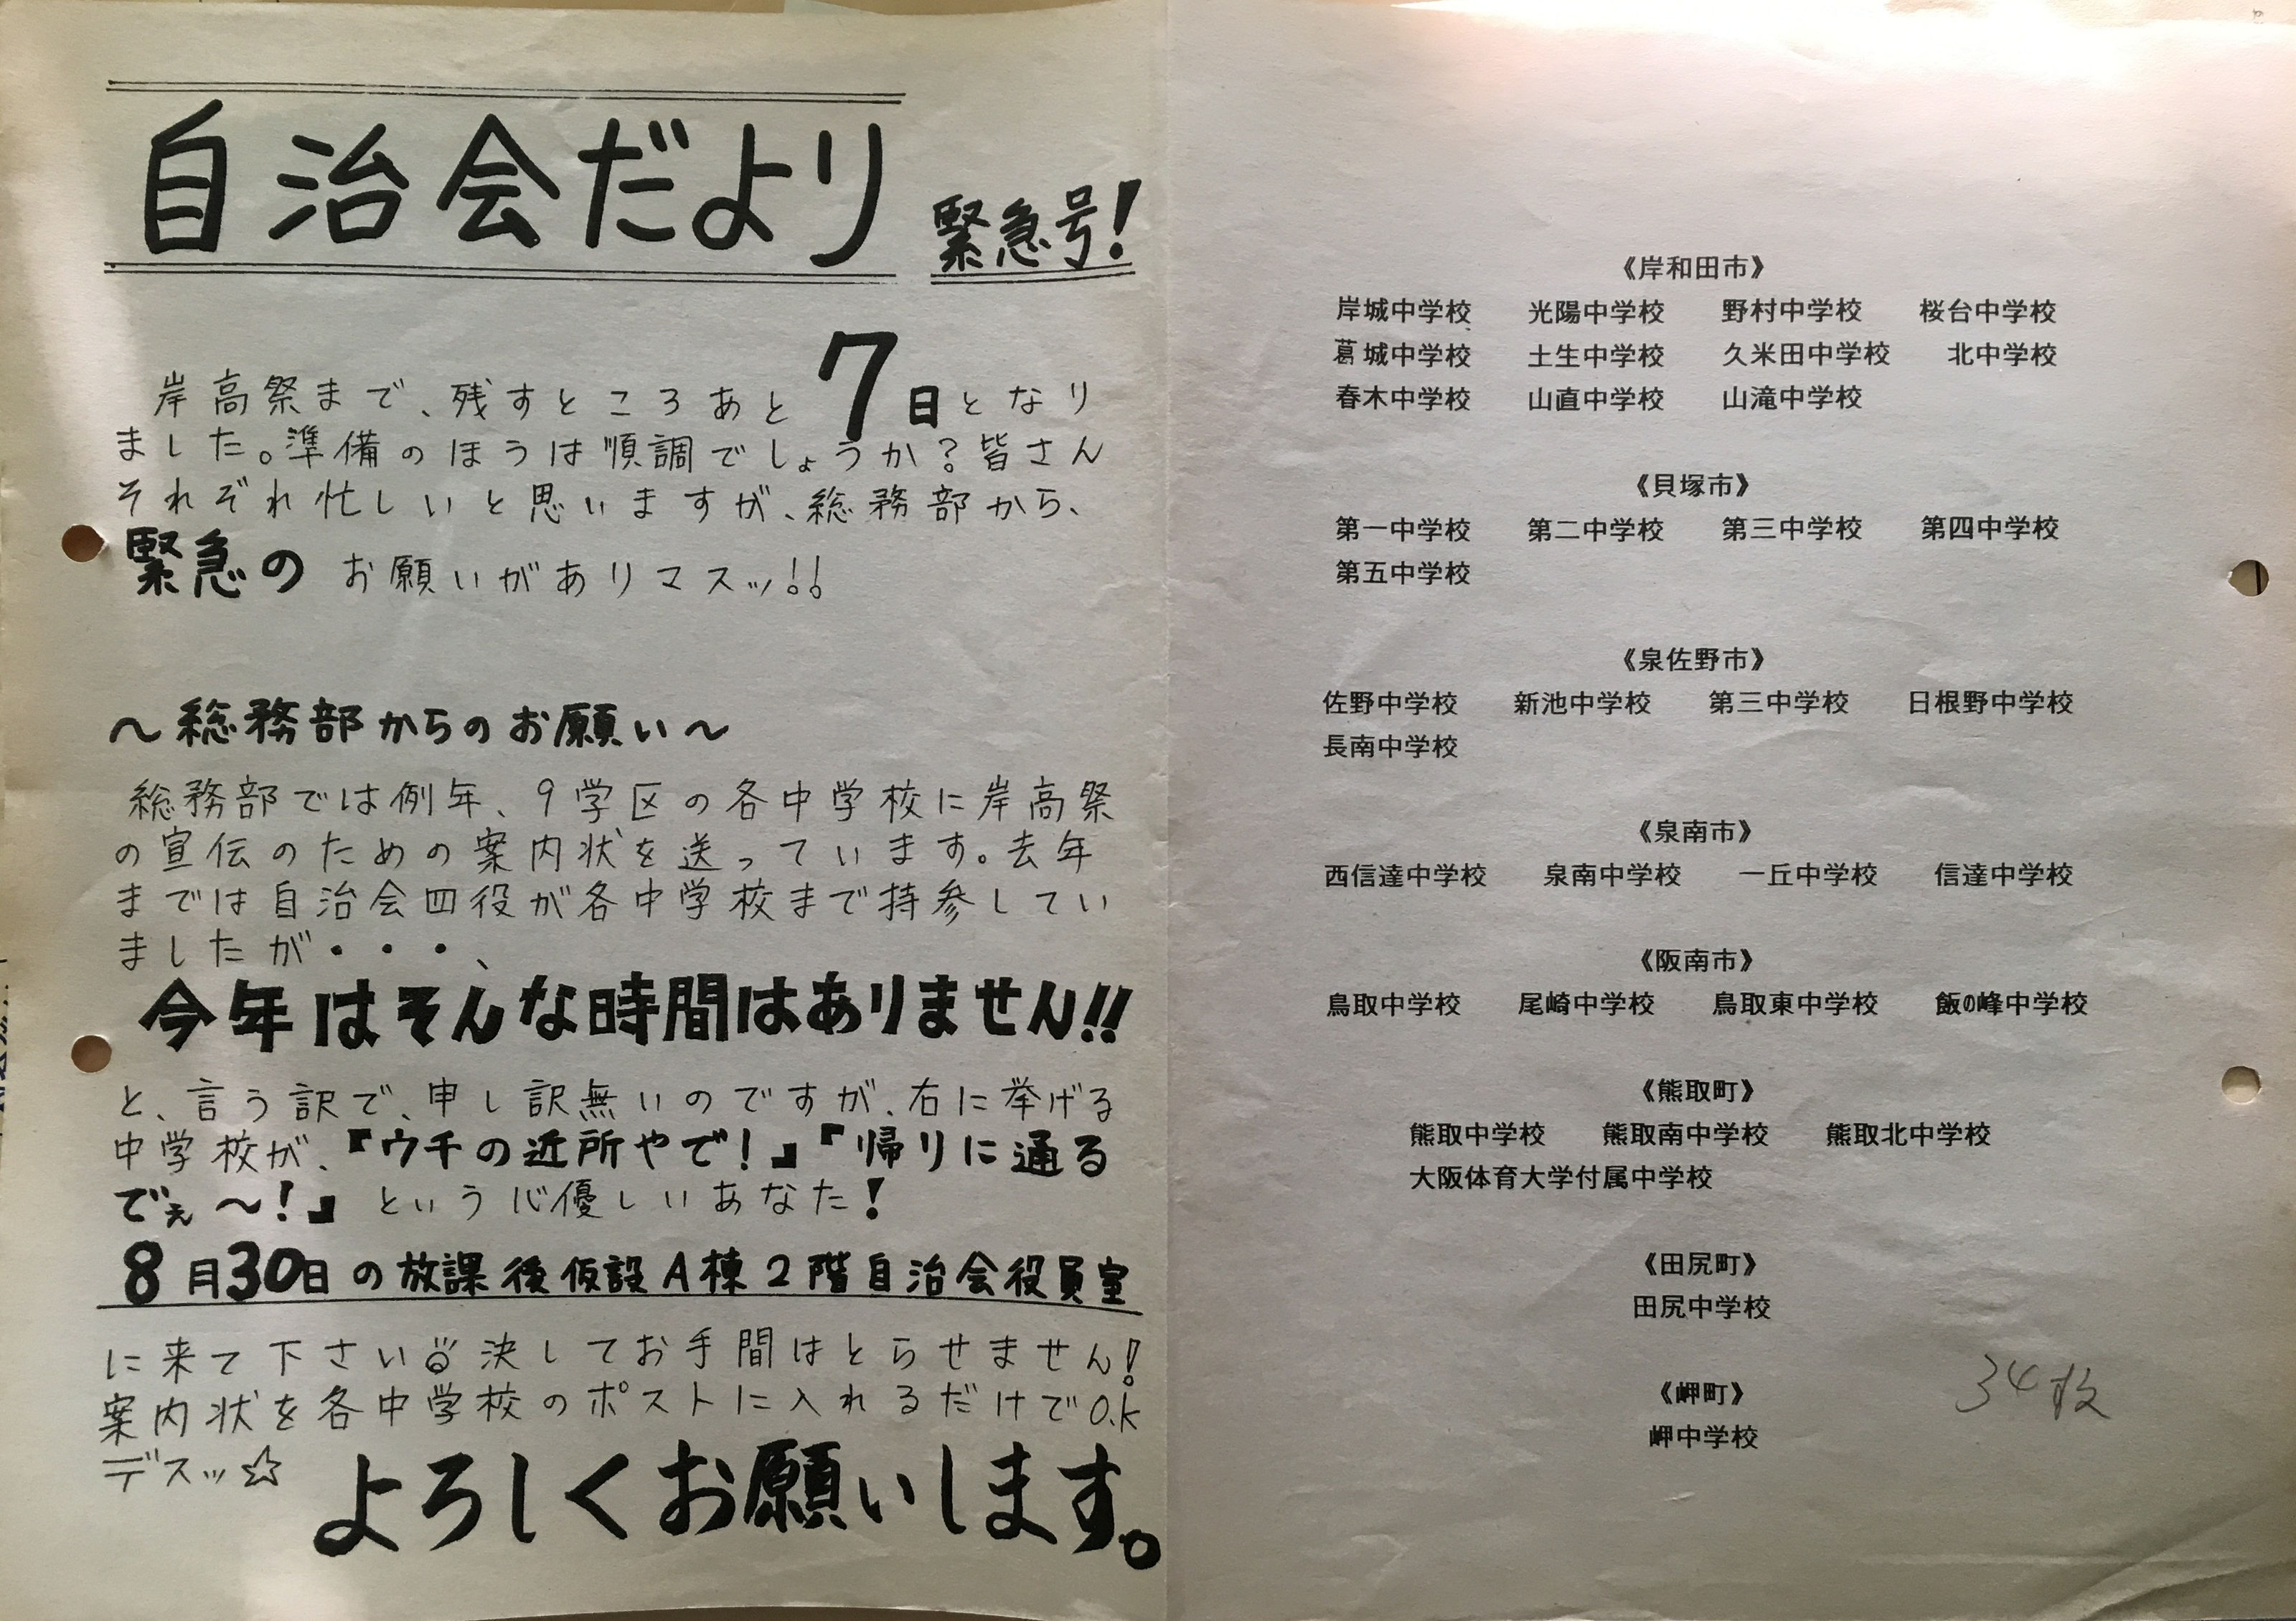 自治会だより
緊急号!
岸高祭まで、残すところあと7日となり
ました。準備のほうは順調でしょうか?皆さん
それぞれ忙しいと思いますが、総務部から、
緊急の お願いがありマスッ!!
~総務部からのお願い~
総務部では例年、9学区の各中学校に岸高祭
の宣伝のための案内状を送っています。去年
までは自治会四役が各中学校まで持参してい
ましたが・・・、
今年はそんな時間はありません!!
と、言う訳で、申し訳無いのですが、右に挙げる
中学校が、『ウチの近所やで!』『帰りに通る
でぇ~!』という心優しいあなた!
8月30日の放課後仮設A棟2階自治会役員室
に来て下さい 決してお手間はとらせません!
案内状を各中学校のポストに入れるだけでO.K
デスッ☆
よろしくお願いします。
《岸和田市》
岸城中学校 光陽中学校 野村中学校 桜台中学校
葛城中学校 土生中学校 久米田中学校 北中学校
春木中学校 山直中学校 山滝中学校
《貝塚市》
第一中学校 第二中学校 第三中学校 第四中学校
第五中学校
《泉佐野市》
佐野中学校 新池中学校 第三中学校 日根野中学校
長南中学校
《泉南市》
西信達中学校 泉南中学校 一丘中学校 信達中学校
《阪南市》
鳥取中学校 尾崎中学校 鳥取東中学校 飯の峰中学校
《熊取町》
熊取中学校 熊取南中学校 熊取北中学校
大阪体育大学付属中学校
《田尻町》
田尻中学校
《岬町》
岬中学校
34枚